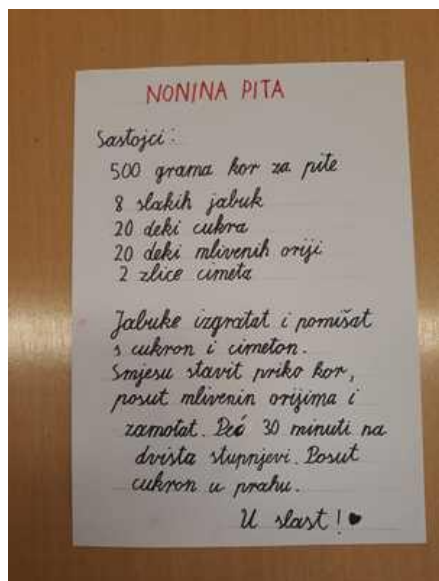 NONINA PITA
Sastojci:
500 grama kor za pite
8 slakih jabuk
20 deki cukra
20 deki mlivenih oriji
2 zlice cimeta
Jabuke izgratat i pomišat
s cukron i cimeton.
Smjesu stavit priko kor,
posut mlivenin orijima i
zamotat. Peć 30 minuti na
dvista stupnjevi. Posut
cukron u prahu.
U slast! ♥